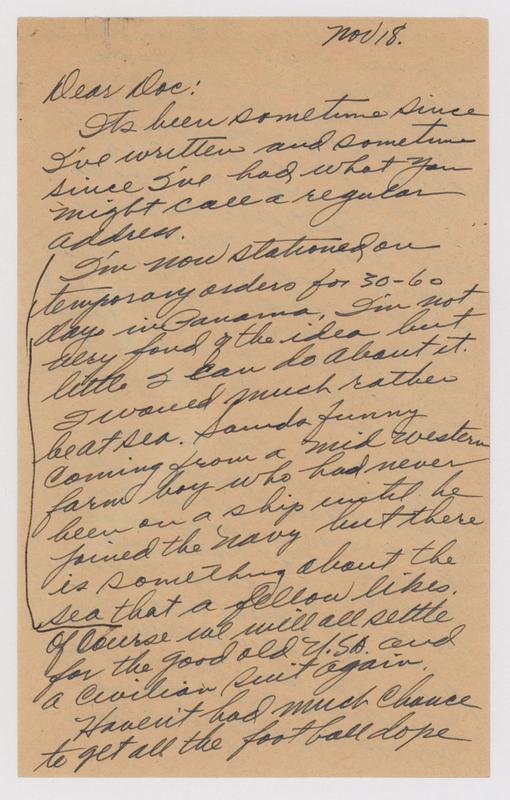 Nov 18.
Dear Doc:
Its been sometime since
I've written and sometime
since I've had what you
might call a regular
address.
I'm now stationed on
temporary orders for 30-60
days in Panama. I'm not
very fond of the idea but
little I can do about it.
I would much rather
be at sea. Sounds funny
coming from a mid western
farm boy who had never
been on a ship until he
joined the Navy but there
is something about the
sea that a fellow likes.
Of course we will all settle
for the good old U.S.A. and
a civilian suit again.
Haven't had much chance
to get all the football dope